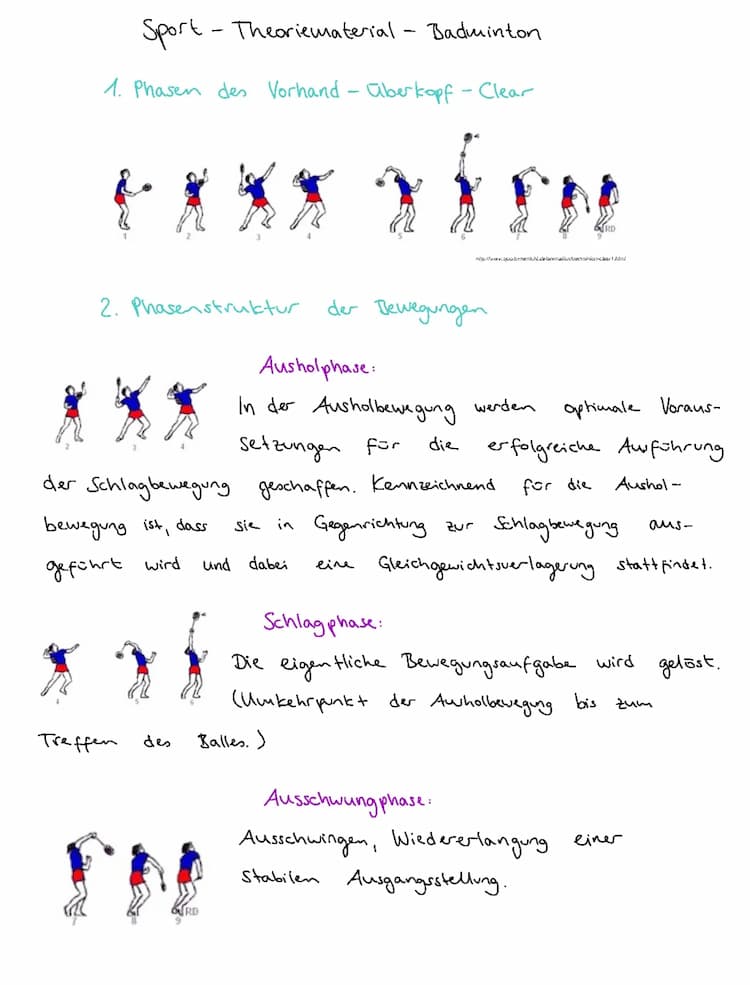 Sport - Theoriematerial - Badminton
1. Phasen des Vorhand - Überkopf - Clear
1 2 3 4 5 6 7 8 9 RD
2. Phasenstruktur der Bewegungen
Ausholphase:
In der Ausholbewegung werden optimale Voraus-
2 3 4
setzungen für die erfolgreiche Ausführung
der Schlagbewegung geschaffen. Kennzeichnend für die Aushol-
bewegung ist, dass sie in Gegenrichtung zur Schlagbewegung aus-
geführt wird und dabei eine Gleichgewichtsverlagerung stattfindet.
Schlagphase:
Die eigentliche Bewegungsaufgabe wird gelöst.
4 5 6
(Umkehrpunkt der Ausholbewegung bis zum
Treffen des Balles.)
Ausschwungphase:
Ausschwingen, Wiedererlangung einer
stabilen Ausgangsstellung.
7 8 9 RD